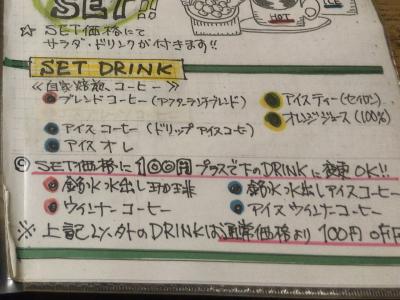 SET!!
HOT
☆ SET価格にて
サラダ・ドリンクが付きます!!
SET DRINK
≪自家焙煎 コーヒー≫
ブレンドコーヒー(アフターランチブレンド)
アイスティー(セイロン)
オレンジジュース(100%)
アイスコーヒー(ドリップアイスコーヒー)
アイスオレ
© SET価格に100円プラスで下のDRINKに変更OK!!
水出し珈琲
水出しアイスコーヒー
ウインナーコーヒー
アイスウインナーコーヒー
※ 上記以外のDRINKは通常価格より100円OFF